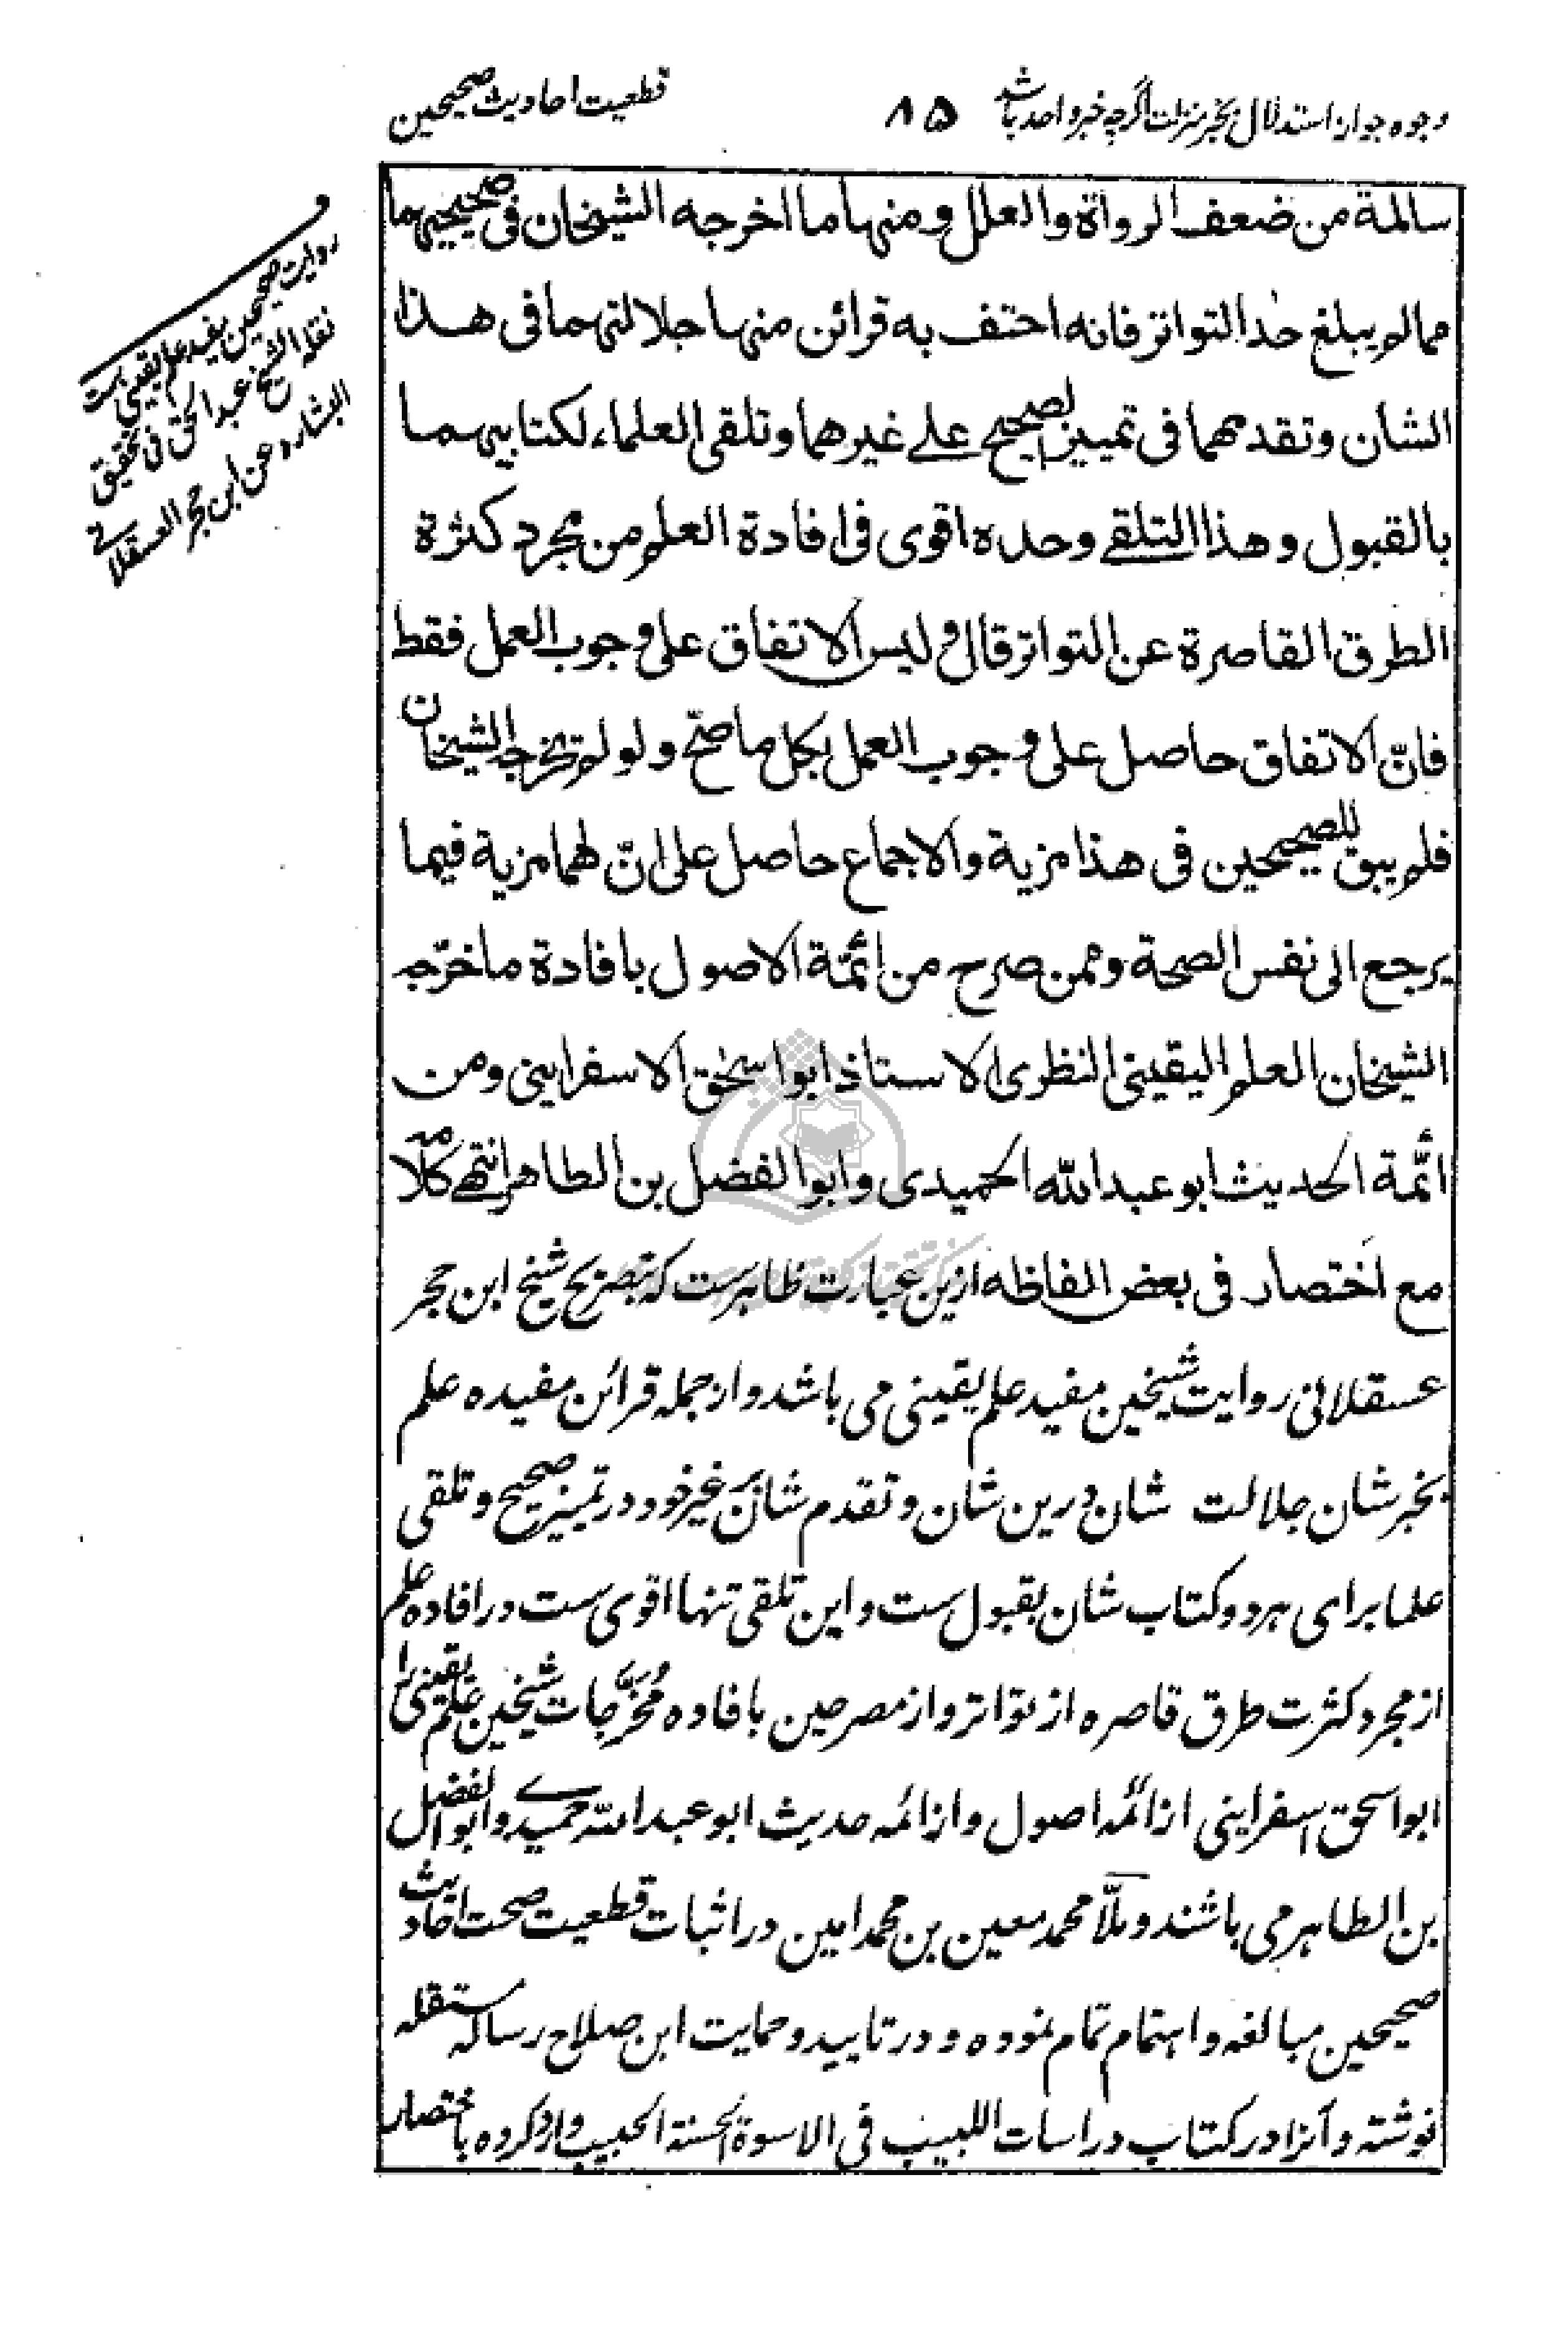 وجوه جواز استدلال بخبر منزلت اگرچه خبر واحد باشد ۸۵ قطعیت احادیث صحیحین
سالمة من ضعف الرواة والعلل ومنها ما اخرجه الشیخان فی صحیحیهما
مما لم یبلغ حد التواتر فانه احتف به قرائن منها جلالتهما فی هذا
الشان وتقدمهما فی تمییز الصحیح علے غیرهما وتلقی العلماء لکتابیهما
بالقبول وهذا التلقے وحده اقوی فی افادة العلم من مجرد کثرة
الطرق القاصرة عن التواتر قال ولیس الاتفاق علی وجوب العمل فقط
فانّ الاتفاق حاصل علی وجوب العمل بکل ما صحّ ولو لم تخرجه الشیخان
فلم یبق للصحیحین فی هذا مزیة والاجماع حاصل علی انّ لهما مزیة فیما
یرجع الی نفس الصحة وممن صرح من ائمّة الاصول بافادة ما خرّجه
الشیخان العلم الیقینی النظری الاستاذ ابو اسحٰق الاسفراینی ومن
ائمّة الحدیث ابو عبد الله الحمیدی وابو الفضل بن الطاهر انتهے کلامه
مع اختصار فی بعض الفاظه ازین عبارت ظاهرست که بتصریح شیخ ابن حجر
عسقلانی روایت شیخین مفید علم یقینی می باشد و از جمله قرائن مفیده علم
بخبر شان جلالت شان درین شان و تقدم شان بر غیر خود در تمییز صحیح و تلقی
علما برای هر دو کتاب شان بقبول ست و این تلقی تنها اقوی ست در افاده علم
از مجرد کثرت طرق قاصره از تواتر و از مصرحین بافاده مُخَرَّجات شیخین علم یقینی را
ابو اسحق اسفراینی از ائمّه اصول و از ائمه حدیث ابو عبد الله حمیدے و ابو الفضل
بن الطاهر می باشند و ملّا محمد معین بن محمد امین در اثبات قطعیت صحت احادیث
صحیحین مبالغه و اهتمام تمام نموده و در تایید و حمایت ابن صلاح رساله مستقله
نوشته و آنرا در کتاب دراسات اللبیب فی الاسوة الحسنة الحبیب وارد کرده باختصار
و
روایت صحیحین یفید علم یقینی ست
نقله الشیخ عبد الحق فی تحقیق
البشاره عن ابن حجر العسقلانے